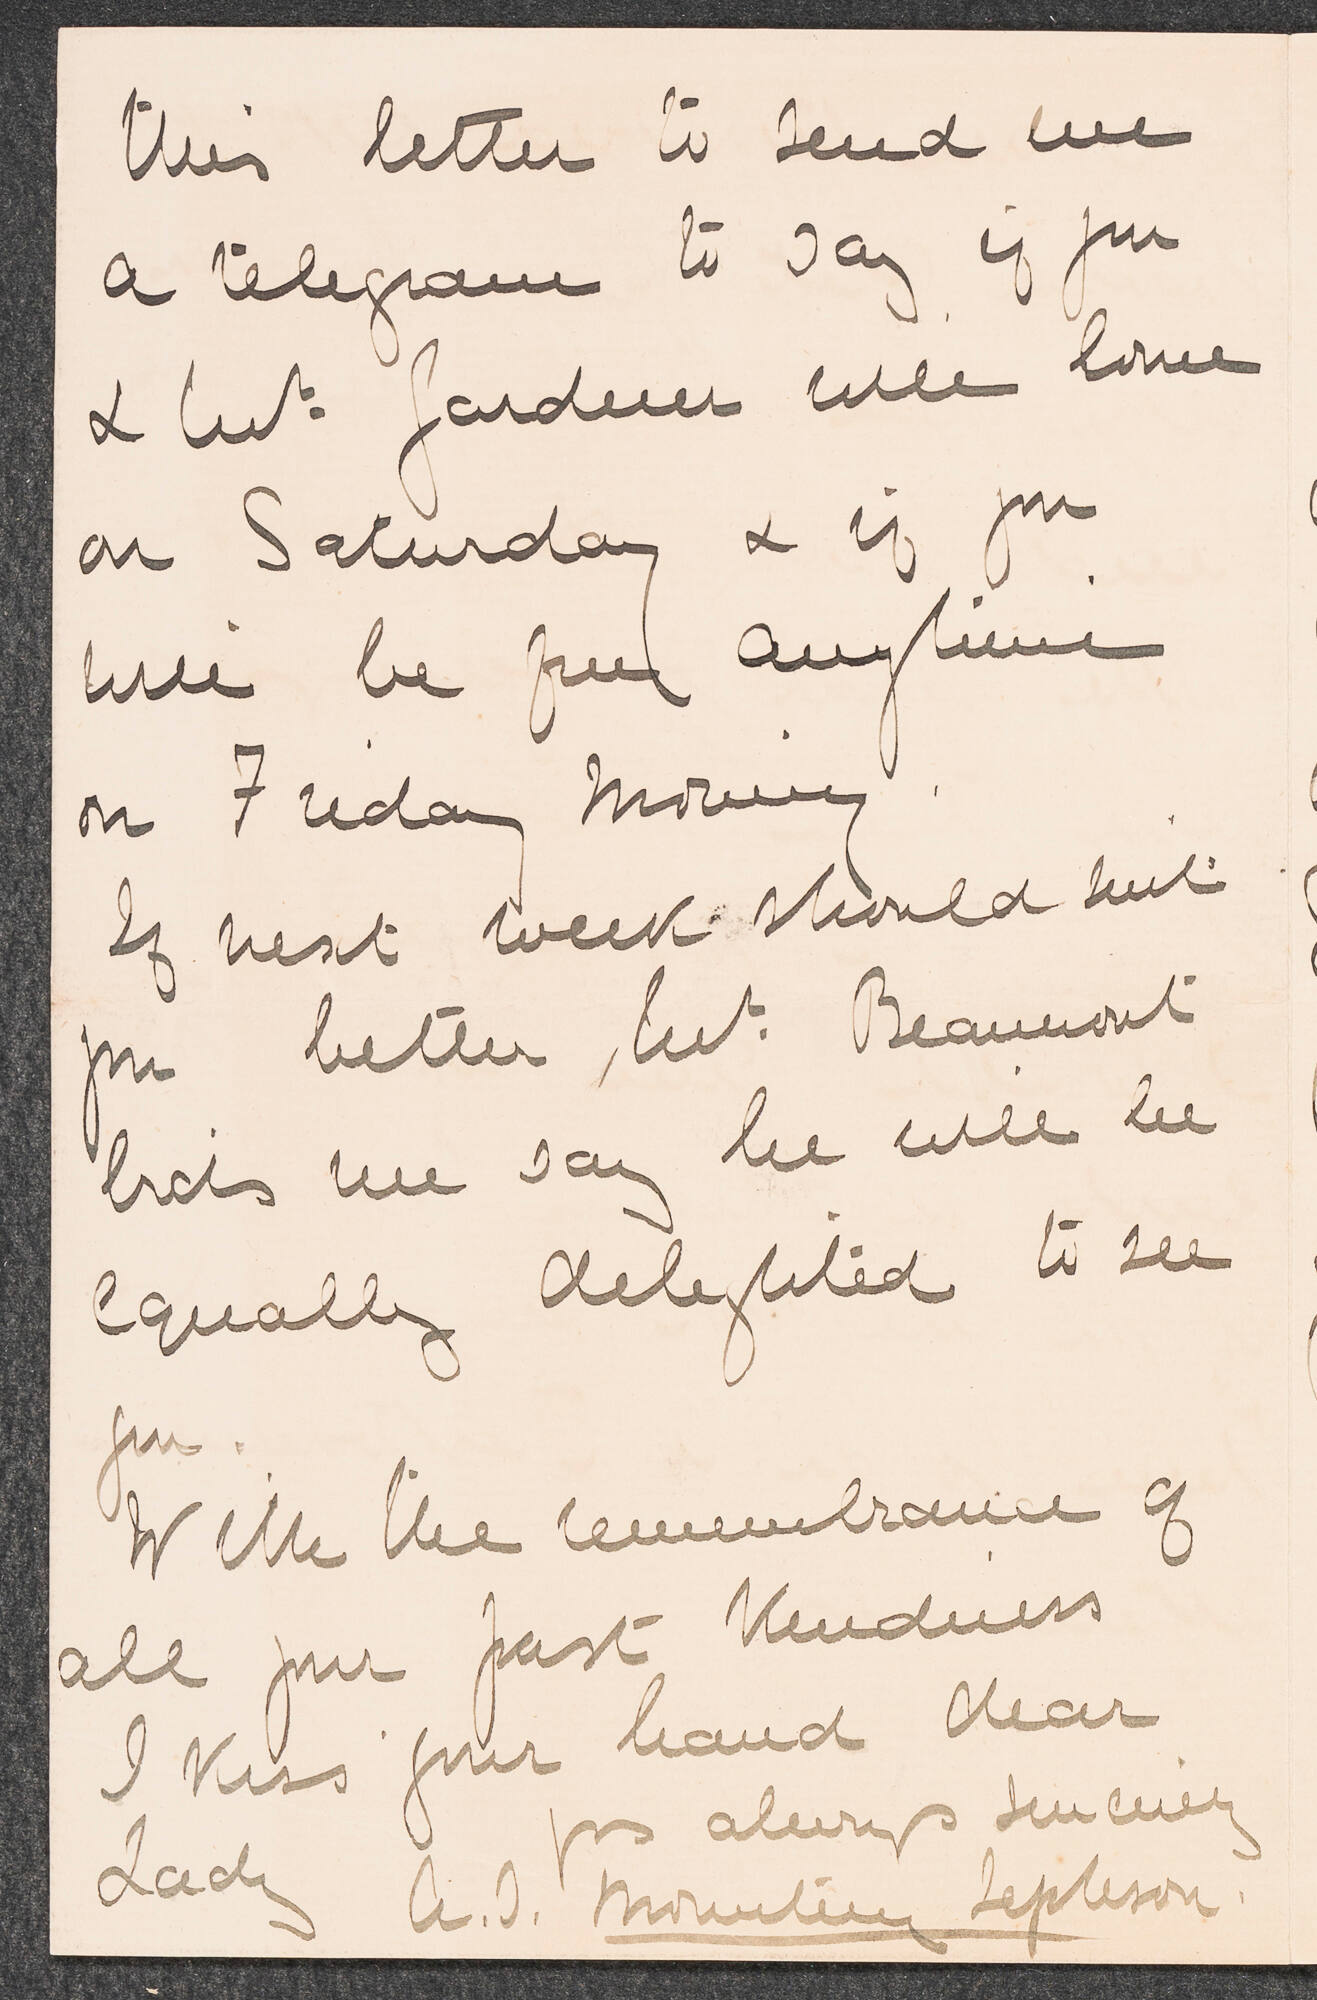 this letter to send me
a telegram to say if you
& Mr. Gardner will come
on Saturday & if you
will be free anytime
on Friday morning.
If next week should suit
you better, Mr. Beaumont
bids me say he will be
equally delighted to see
you.
With the remembrance of
all your past kindness
I kiss your hand dear
Lady
yrs always sincerely
A. J. Mounteney Jephson.